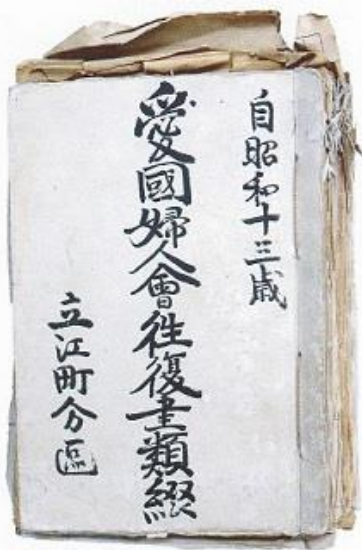 自昭和十三歳
愛國婦人會往復書類綴
立江町分區